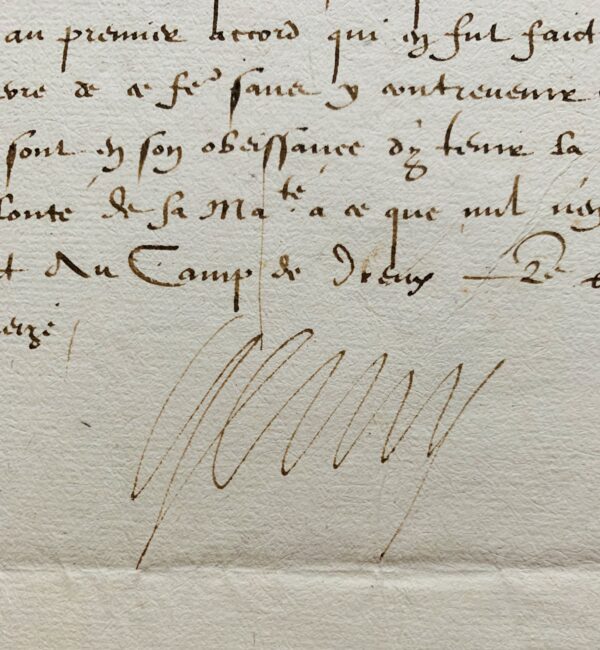 au premier accord qui en fut faict
de ce fe^r sans y contrevenir
sont en son obeissance d'y tenir la
lonté de sa Ma^té a ce que nul n'en
Au Camp de Dreux Le
Henry